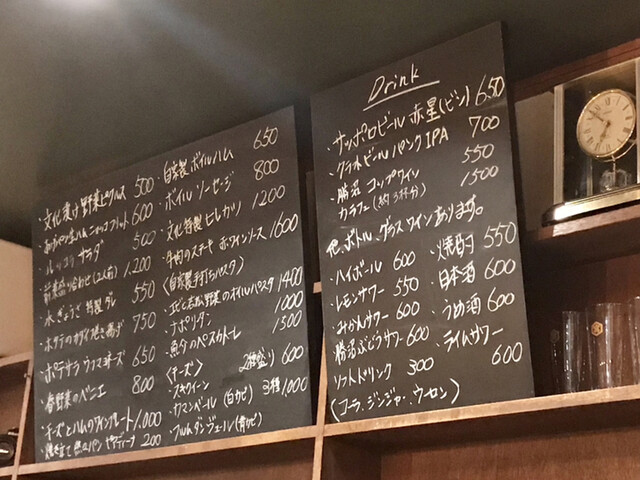 ・文化漬け 野菜ピクルス 500
600
・ルッコラ サラダ 500
・前菜盛り合わせ(2人前) 1.200
・水ぎょうざ 特製ダレ 550
・ホタテ 750
・ポテサラ 650
・春野菜のベニエ 800
・チーズとハムの 1.000
200
自家製 ボイルハム 650
・ボイル ソーセージ 800
・文化特製 ピレカツ 1200
・牛肉のステーキ 赤ワインソース 1600
〈自家製手打ちパスタ〉
野菜のオイルパスタ 1400
・ナポリタン 1000
・魚介のペスカトーレ 1500
〈チーズ〉 2種盛り 600
・カマンベール (白カビ) 3種 1,000
・フルムダンベール(青カビ)
Drink
・サッポロビール 赤星(ビン) 650
・クラネビール パンク IPA 700
・勝沼 コップワイン 550
カラフェ(約3杯分) 1500
他、ボトル、グラスワインあります。
・ハイボール 600
・レモンサワー 550
・みかんサワー 600
・勝沼ぶどうサワー 600
・ソフトドリンク 300
(コーラ、ジンジャー、ウーロン)
・焼酎 550
・日本酒 600
・うめ酒 600
・ライムサワー 600